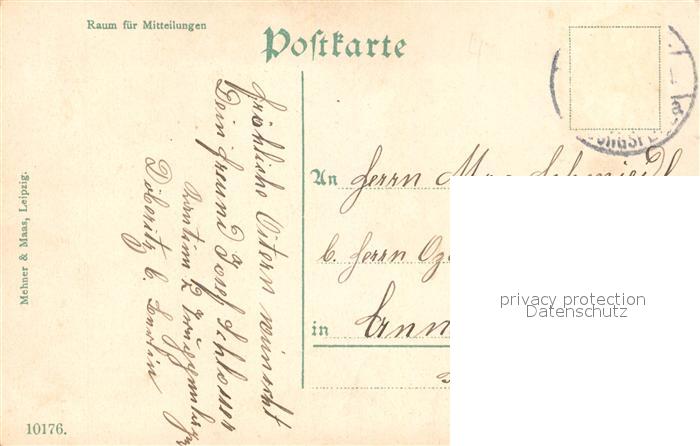 Raum für Mitteilungen
Postkarte
Fröhliche Ostern wünscht
Dein Freund Josef Schlosser
Kantine 2 Truppenlager
Döberitz b. Berlin
An Herrn Max Schmiedl
b. Herrn
in
privacy protection
Datenschutz
Mehner & Maas, Leipzig.
10176.